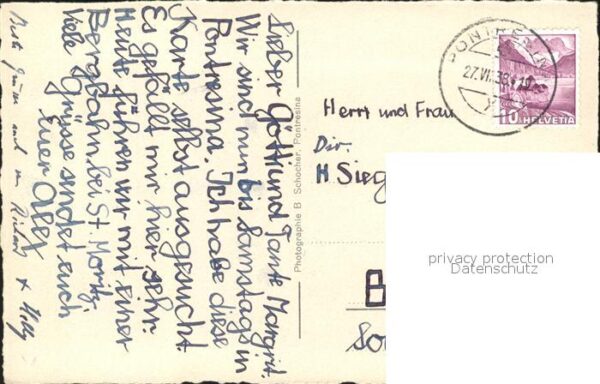 Lieber Götti und Tante Margrit.
Wir sind nun bis Samstags in
Pontresina. Ich habe diese
Karte selbst ausgesucht.
Es gefällt mir hier sehr.
Heute fuhren wir mit einer
Bergbahn bei St. Moritz.
Viele Grüsse sendet euch
Euer Alex
und von
Photographie B Schocher, Pontresina
PONTRESINA
27.VII.38
10 HELVETIA
Herrn und Frau
Dir.
H Sieg
B
So
privacy protection
Datenschutz